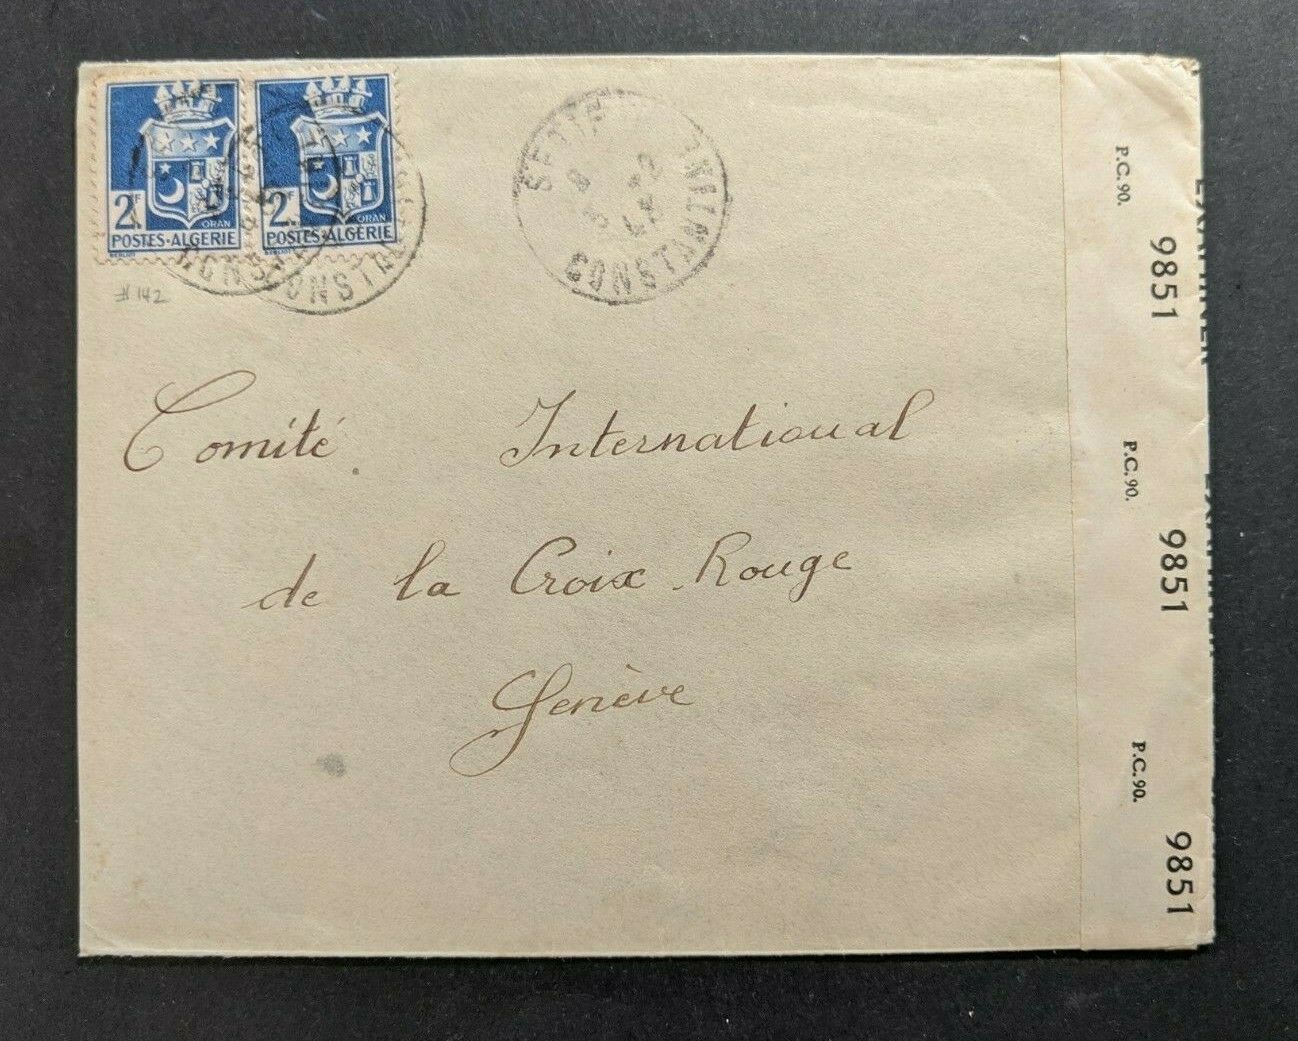 2F
ORAN
POSTES-ALGÉRIE
2F
ORAN
POSTES-ALGÉRIE
CONSTAN
SETIF
CONSTANTINE
# 142
Comité International
de la Croix Rouge
Genève
P.C. 90.
9851
P.C. 90.
9851
P.C. 90.
9851